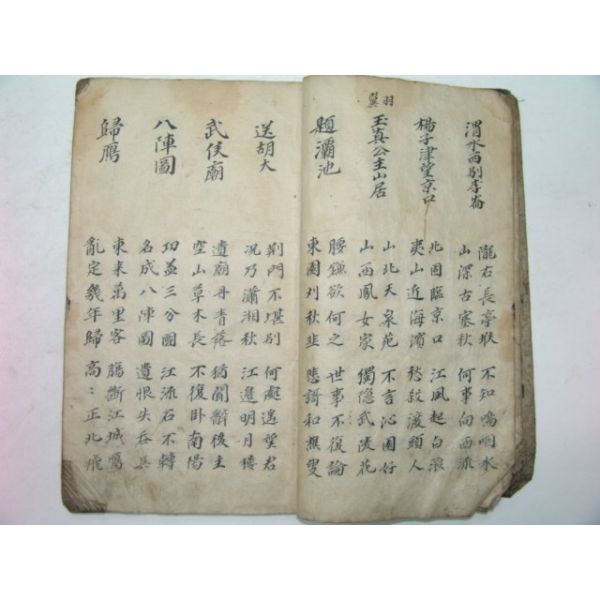 羽翼
渭水西別李崙
隴右長亭堠 不知嗚咽水
山深古塞秋 何事向西流
楊子津望京口
北固臨京口 江風起白浪
夷山近海濱 愁殺渡頭人
玉真公主山居
山北天泉苑 不言沁園好
山西鳳女家 獨隱武陵花
題灞池
腰鎌欲何之 世事不復論
東園刈秋韭 悲謌和樵叟
送胡大
荆門不堪別 何處遙望君
況乃瀟湘秋 江邊明月樓
武侯廟
遺廟丹青落 猶聞辭後主
空山草木長 不復卧南陽
八陣圖
功盖三分國 江流石不轉
名成八陣圖 遺恨失吞吳
歸鴈
東来萬里客 腸斷江城鴈
亂定幾年歸 高〻正北飛